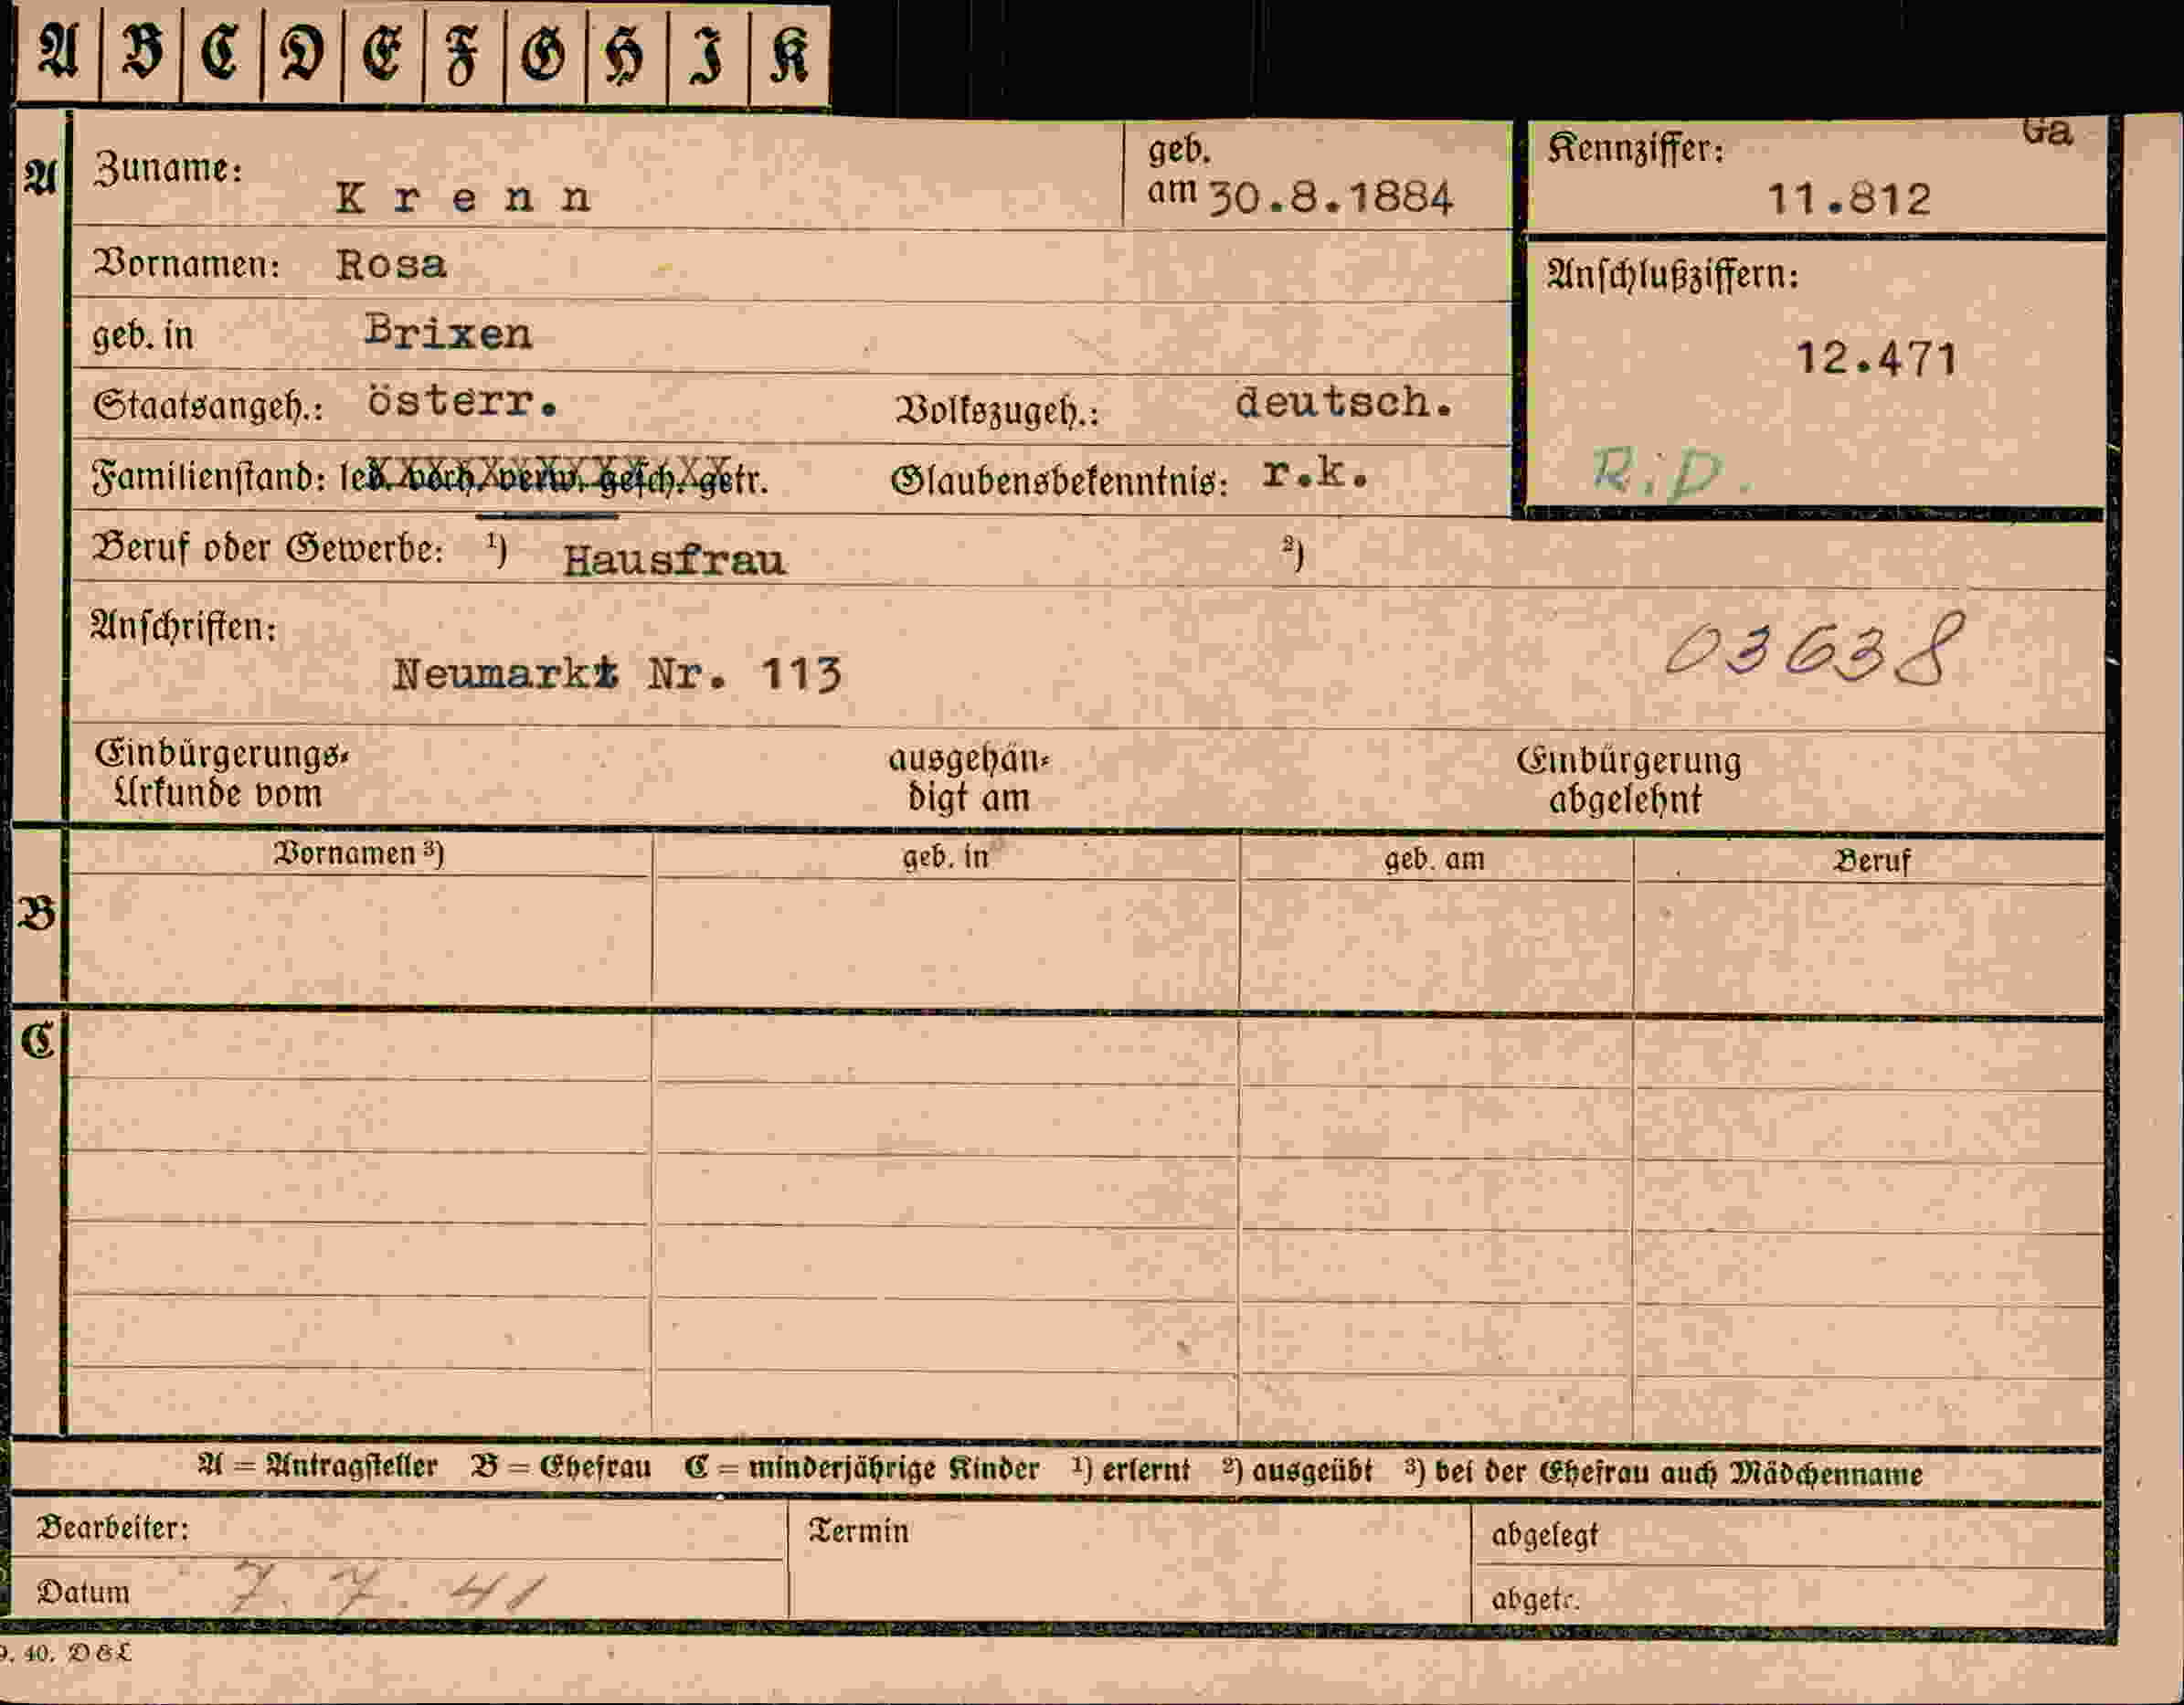 A B C D E F G H I K
Ga
A
Zuname: Krenn
geb. am 30.8.1884
Kennziffer: 11.812
Vornamen: Rosa
Anschlußziffern:
12.471
R.D.
geb. in Brixen
Staatsangeh.: österr. Volkszugeh.: deutsch.
Familienstand: led. verh. verw. gesch. getr. Glaubensbekenntnis: r.k.
Beruf oder Gewerbe: ¹) Hausfrau ²)
Anschriften:
Neumarkt Nr. 113
03638
Einbürgerungs-
Urkunde vom
ausgehän-
digt am
Einbürgerung
abgelehnt
B
Vornamen ³) geb. in geb. am Beruf
C
A = Antragsteller B = Ehefrau C = minderjährige Kinder ¹) erlernt ²) ausgeübt ³) bei der Ehefrau auch Mädchenname
Bearbeiter: Termin abgelegt
Datum 7. 7. 41 abgetr.
9. 40. D&L